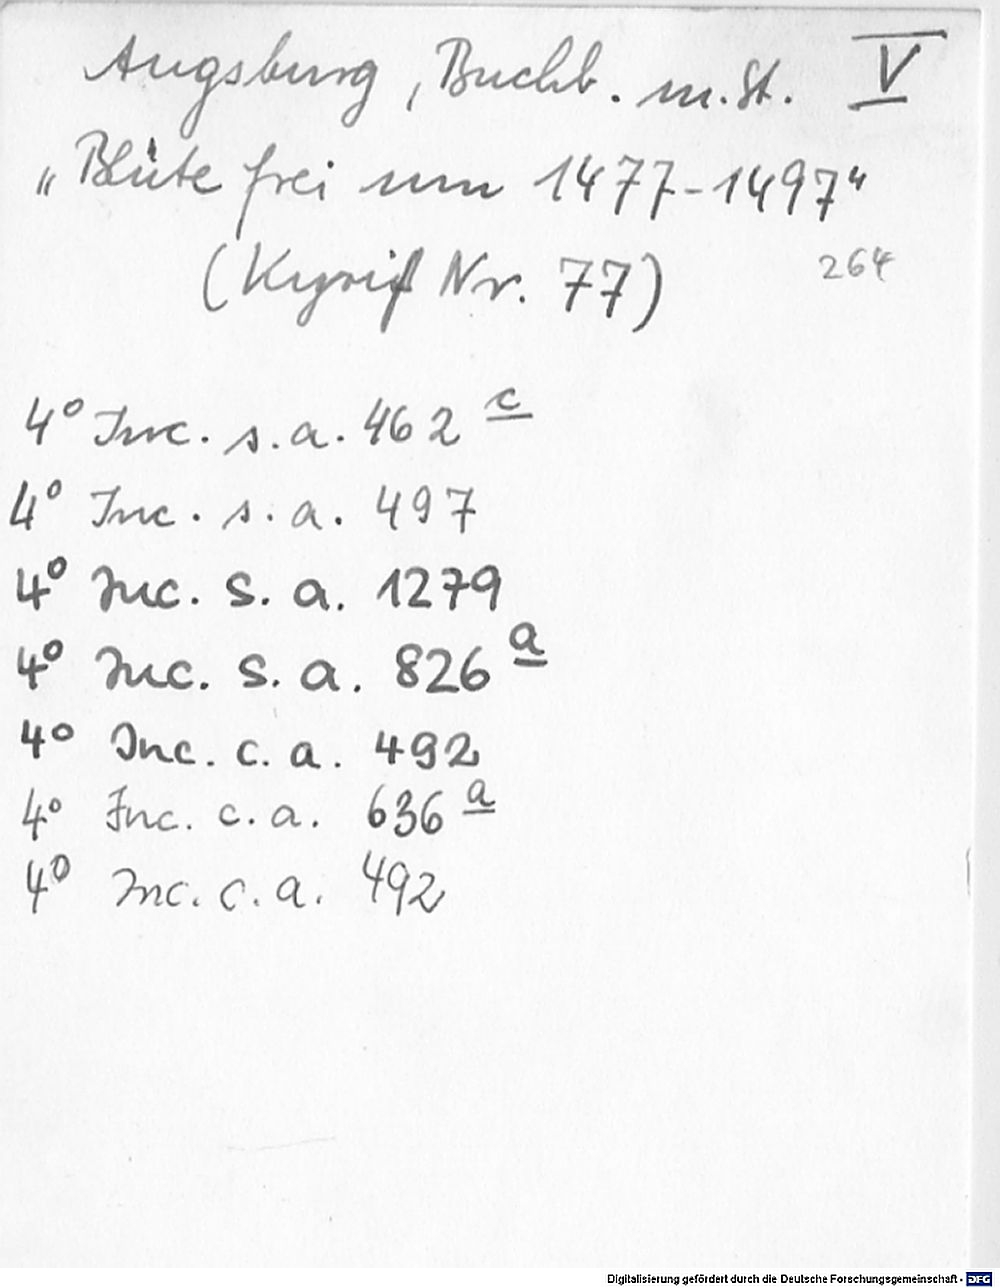 Augsburg, Buchb. m. St. V
"Blüte frei um 1477-1497"
(Kyriß Nr. 77) 264
4° Inc. s. a. 462 c
4° Inc. s. a. 497
4° Inc. s. a. 1279
4° Inc. s. a. 826 a
4° Inc. c. a. 492
4° Inc. c. a. 636 a
4° Inc. c. a. 492
Digitalisierung gefördert durch die Deutsche Forschungsgemeinschaft - DFG